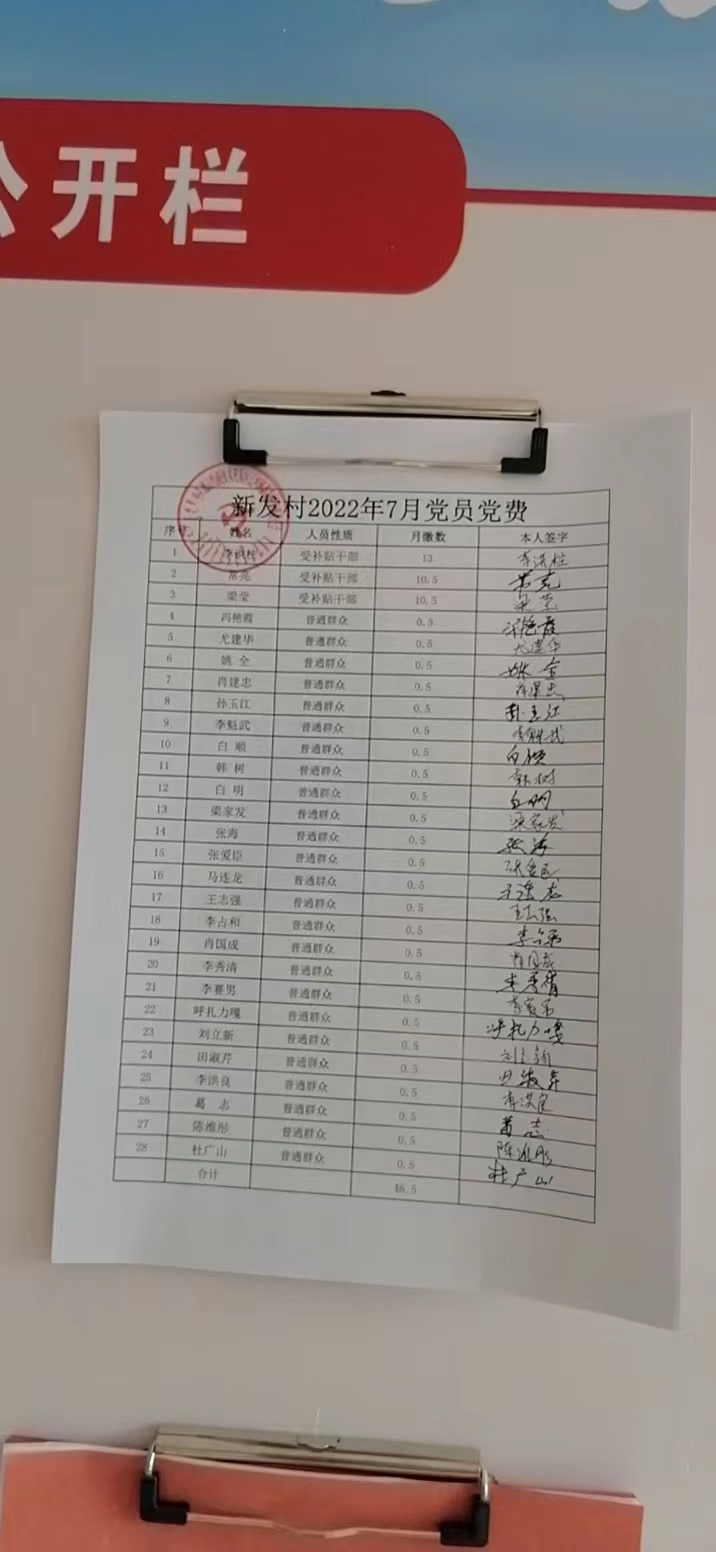 公开栏
新发村2022年7月党员党费
序号 姓名 人员性质 月缴数 本人签字
1 李洪柱 受补贴干部 13 李洪柱
2 常亮 受补贴干部 10.5 常亮
3 梁莹 受补贴干部 10.5 梁莹
4 冯艳霞 普通群众 0.5 冯艳霞
5 尤建华 普通群众 0.5 尤建华
6 姚 全 普通群众 0.5 姚全
7 肖建忠 普通群众 0.5 肖建忠
8 孙玉江 普通群众 0.5 孙玉江
9 李魁武 普通群众 0.5 李魁武
10 白 顺 普通群众 0.5 白顺
11 韩 树 普通群众 0.5 韩树
12 白 明 普通群众 0.5 白明
13 梁家发 普通群众 0.5 梁家发
14 张海 普通群众 0.5 张海
15 张爱臣 普通群众 0.5
16 马连龙 普通群众 0.5 马连龙
17 王志强 普通群众 0.5 王志强
18 李占和 普通群众 0.5
19 肖国成 普通群众 0.5 肖国成
20 李秀清 普通群众 0.5 李秀清
21 李赛男 普通群众 0.5 李赛男
22 呼扎力嘎 普通群众 0.5 呼扎力嘎
23 刘立新 普通群众 0.5 刘立新
24 田淑芹 普通群众 0.5 田淑芹
25 李洪良 普通群众 0.5 李洪良
26 葛 志 普通群众 0.5 葛志
27 陈维彤 普通群众 0.5 陈维彤
28 杜广山 普通群众 0.5 杜广山
合计 46.5